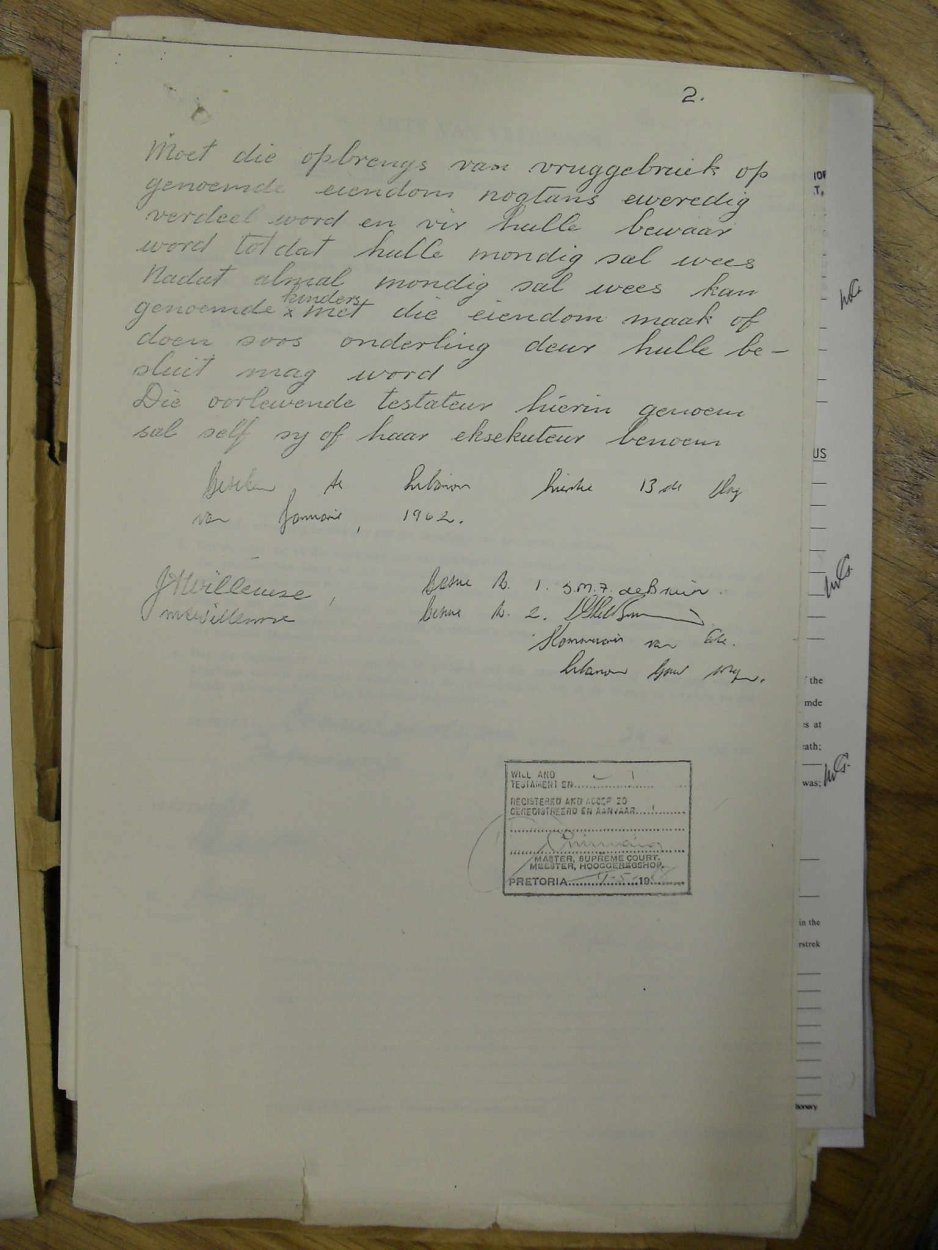 2.
Moet die opbrengs van vruggebruik op
genoemde eiendom nogtans eweredig
verdeel word en vir hulle bewaar
word totdat hulle mondig sal wees
Nadat almal mondig sal wees kan
genoemde kinders met die eiendom maak of
doen soos onderling deur hulle be-
sluit mag word
Die oorlewende testateur hierin genoem
sal self sy of haar eksekuteur benoem
te Lebanon hierdie 13 de dag
van Januarie, 1962.
JHWillemse,
Willemse
1. S.M.F. de Bruin
2.
Kommissaris van Ede.
Lebanon
WILL AND
TESTAMENT EN
REGISTERED AND ACCEPTED
GEREGISTREERD EN AANVAAR
MASTER, SUPREME COURT.
MEESTER, HOOGGEREGSHOF.
PRETORIA 19
US
the
mde
s at
ath;
was;
in the
rstrek
tionery